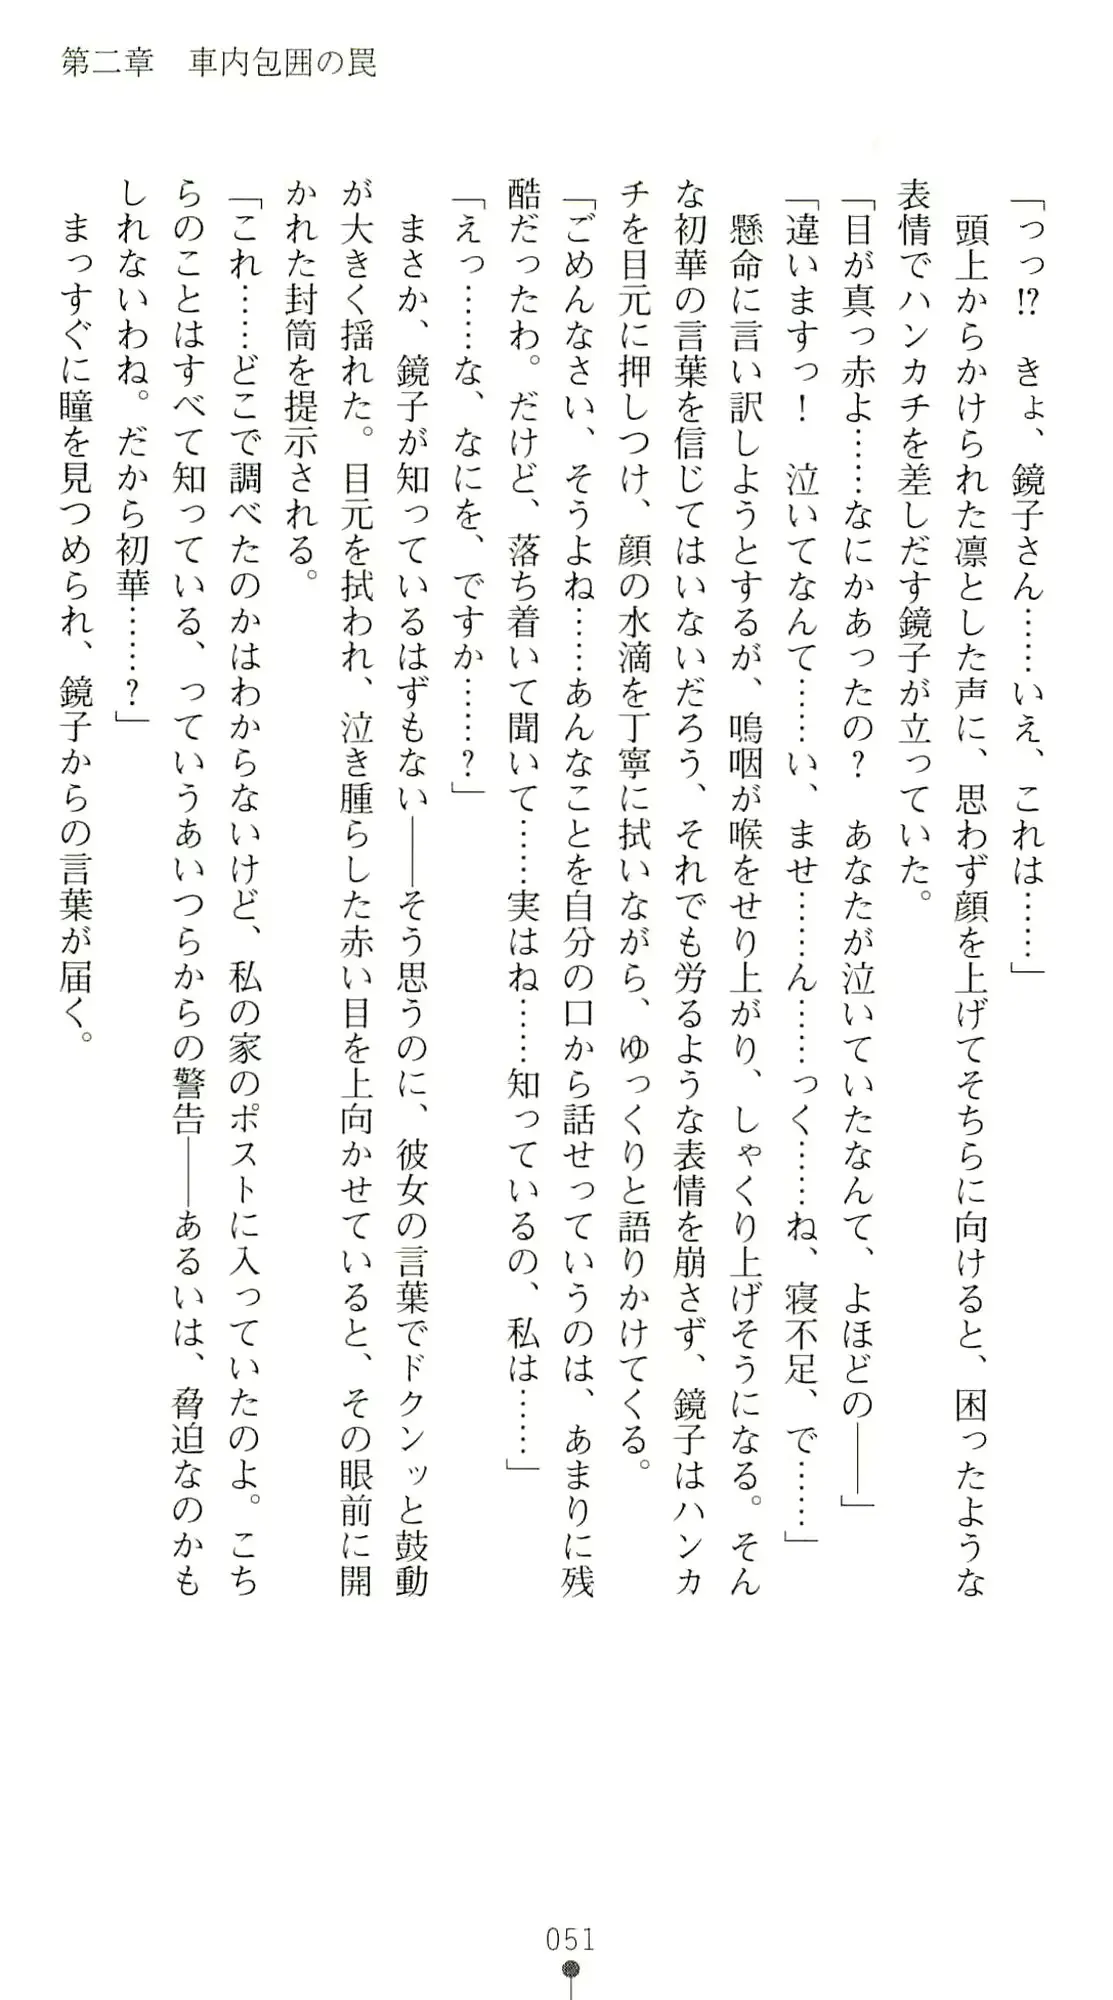 第二章　車内包囲の罠
「っっ!?　きょ、鏡子さん……いえ、これは……」
　頭上からかけられた凛とした声に、思わず顔を上げてそちらに向けると、困ったような
表情でハンカチを差しだす鏡子が立っていた。
「目が真っ赤よ……なにかあったの？　あなたが泣いていたなんて、よほどの――」
「違いますっ！　泣いてなんて……い、ませ……ん……っく……ね、寝不足、で……」
　懸命に言い訳しようとするが、嗚咽が喉をせり上がり、しゃくり上げそうになる。そん
な初華の言葉を信じてはいないだろう、それでも労るような表情を崩さず、鏡子はハンカ
チを目元に押しつけ、顔の水滴を丁寧に拭いながら、ゆっくりと語りかけてくる。
「ごめんなさい、そうよね……あんなことを自分の口から話せっていうのは、あまりに残
酷だったわ。だけど、落ち着いて聞いて……実はね……知っているの、私は……」
「えっ……な、なにを、ですか……？」
　まさか、鏡子が知っているはずもない――そう思うのに、彼女の言葉でドクンッと鼓動
が大きく揺れた。目元を拭われ、泣き腫らした赤い目を上向かせていると、その眼前に開
かれた封筒を提示される。
「これ……どこで調べたのかはわからないけど、私の家のポストに入っていたのよ。こち
らのことはすべて知っている、っていうあいつらからの警告――あるいは、脅迫なのかも
しれないわね。だから初華……？」
　まっすぐに瞳を見つめられ、鏡子からの言葉が届く。
051